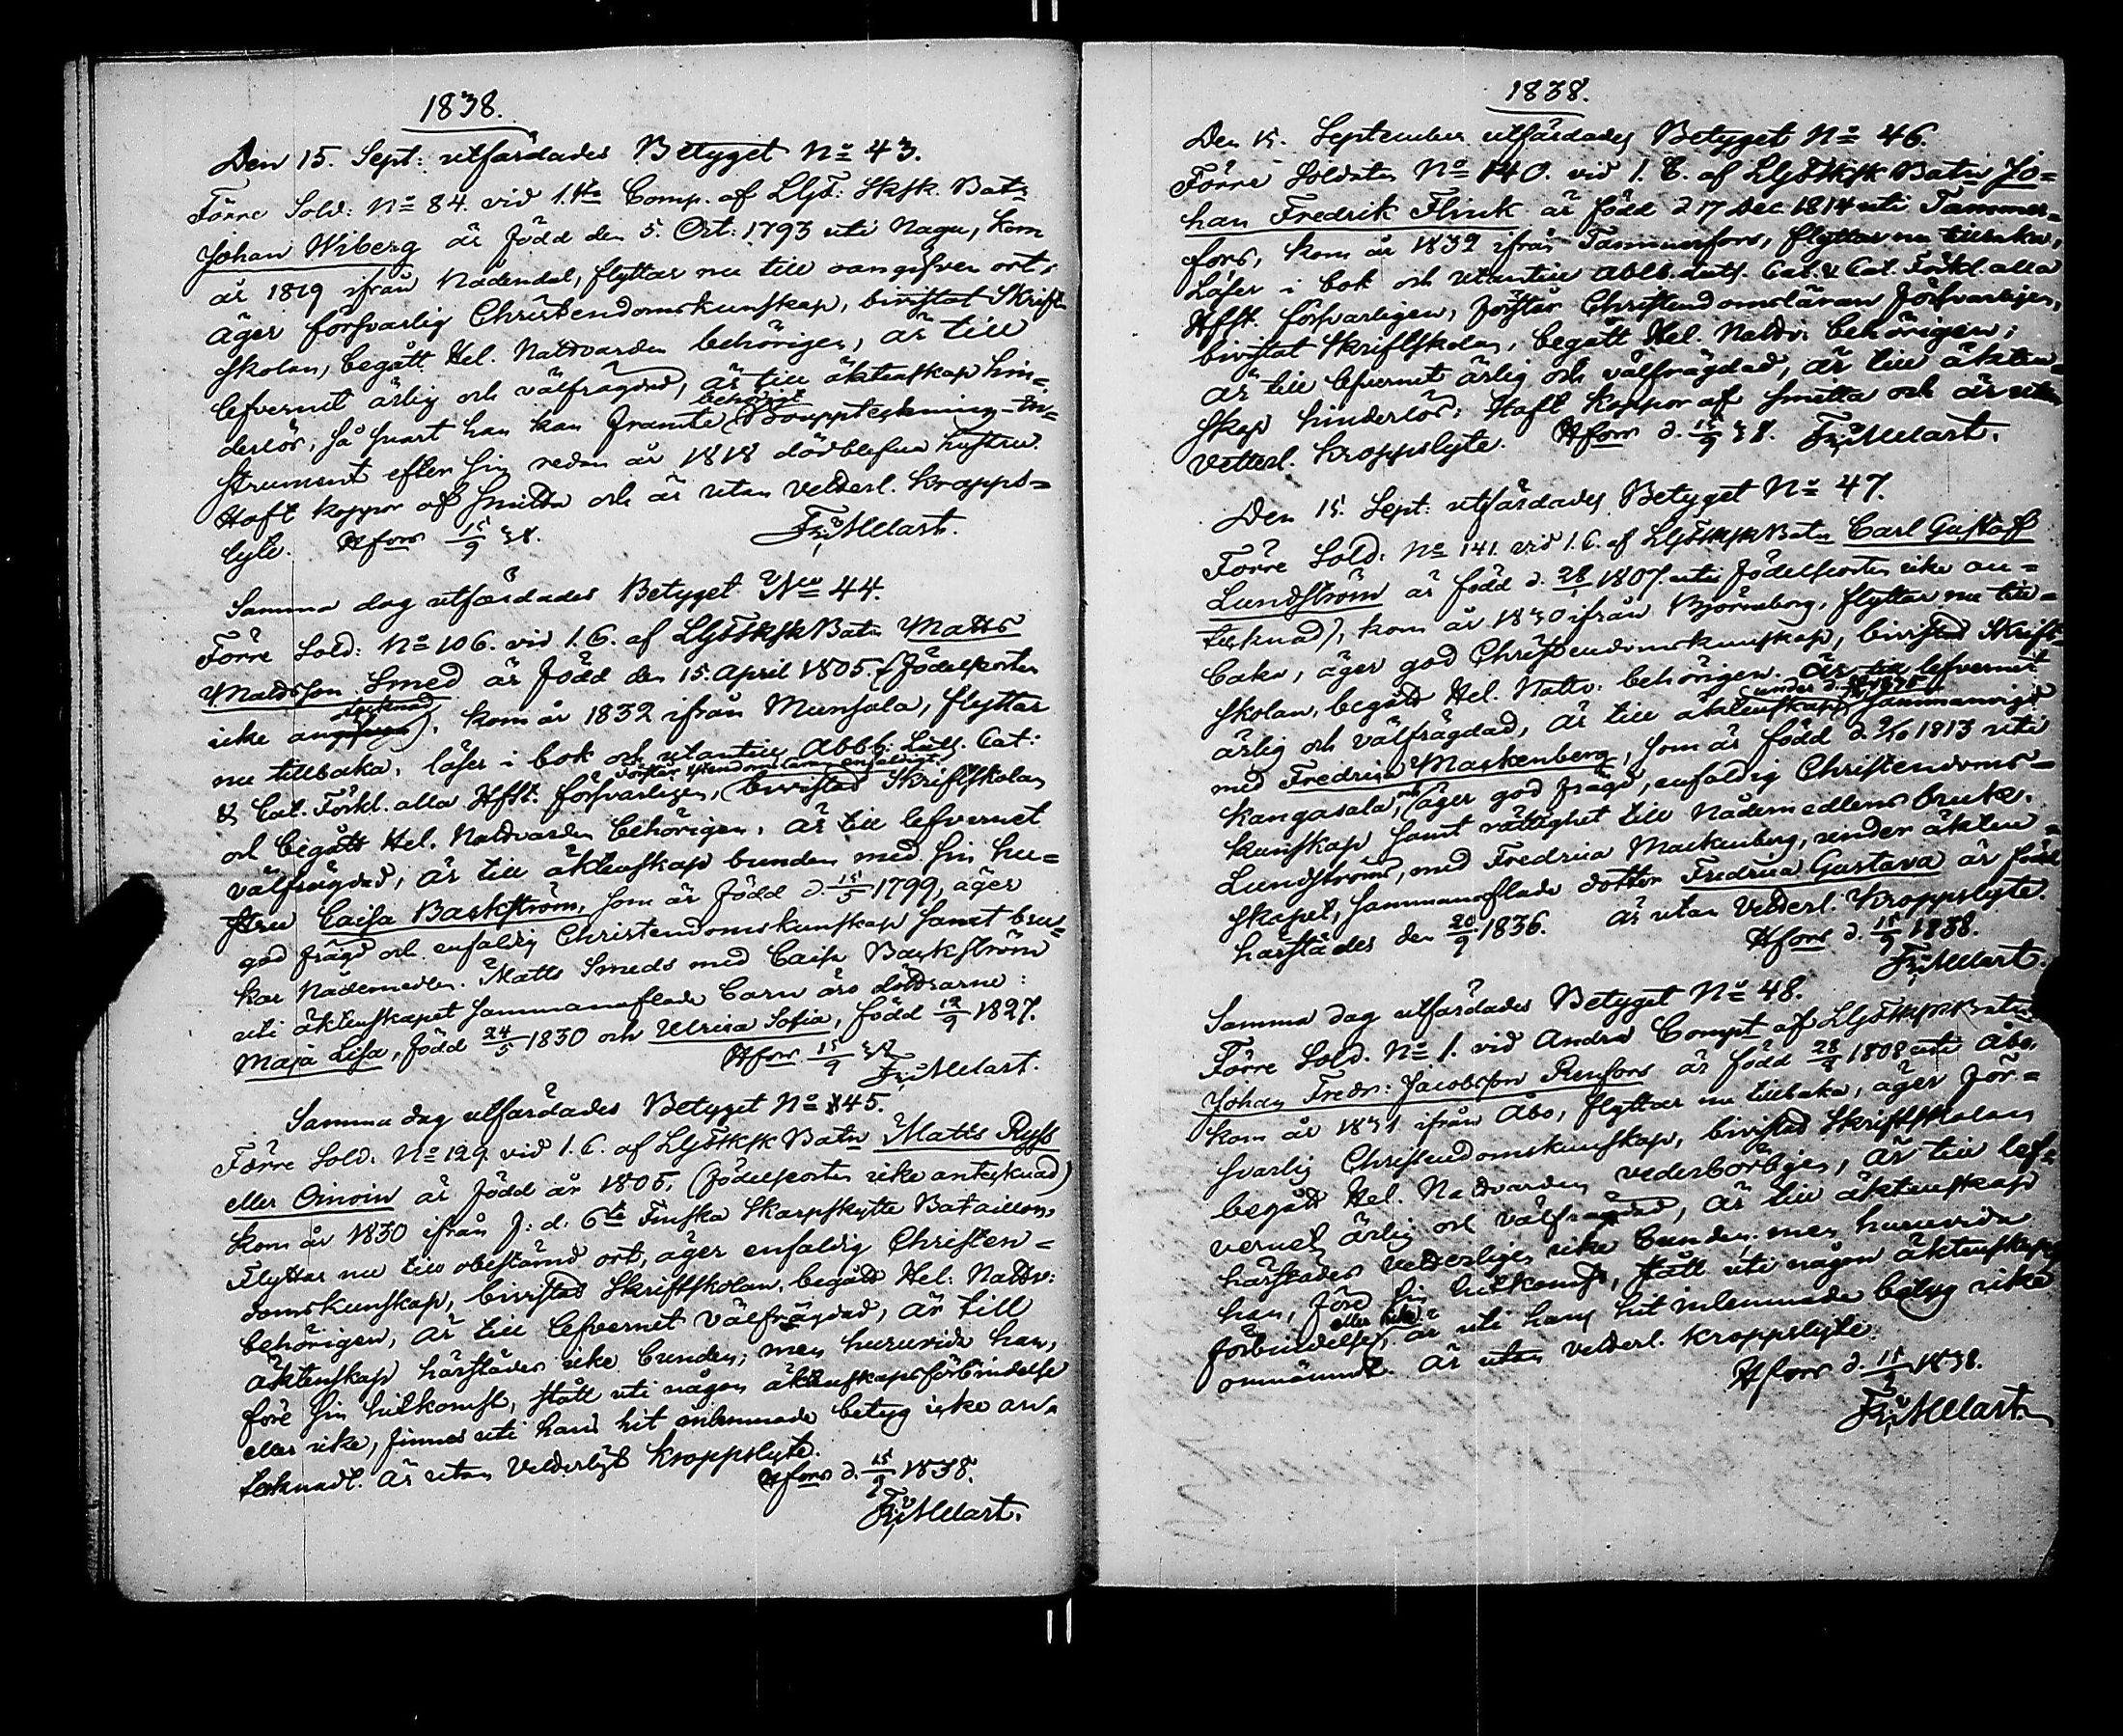 1838.
Den 15. Sept: utfärdades Betyget No 43.
Förre Sold: No 84. vid 1.sta Comp. af LGdS: SkSk. Batn
Johan Wiberg är född den 5. Oct: 1793 uti Nagu, kom
år 1819 ifrån Nådendal, flyttar nu till oangifven ort,
äger försvarlig Christendomskunskap, bivistat Skrift
skolan, begått Hel. Nattvarden behörigen, är till
lefvernet ärlig och välfrägdad, är till äktenskap hin=
derlös, så snart han kan framte behörigt Bouppteckning-In=
strument efter sin redan år 1818 dödblefna hustru.
Haft koppor af smitta och är utan vetterl. kropps=
lyte. Hfors 15/9 38. Fr: Melart.
Samma dag utfärdades Betyget No 44.
Förre Sold: No 106. vid 1. C. af Batn Matts
Mattsson Smed är född den 15. April 1805. (födelseorten
icke antecknad), kom år 1832 ifrån Munsala, flyttar
nu tillbaka, läser i bok och utantill Abbb. Luth. Cat:
& Cat. Förkl. alla Hfst. försvarligen, förstår Xstendomsläran enfaldigt, bivistad Skriftskolan
och begått Hel. Nattvarden behörigen. är till lefvernet
välfrägdad, är till äktenskap bunden med sin hu=
stru Caisa Backström, som är född d. 15/5 1799, äger
god frägd och enfaldig Christendomskunskap samt bru=
kar Nådemedlen. Matts Smeds med Caisa Backström
uti äktenskapet sammanaflade barn äro döttrarne:
Maja Lisa, född 24/5 1830 och Ulrica Sofia, född 12/9 1827.
Hfors 15/9 38
Fr: Melart.
Samma dag utfärdades Betyget No 45.
Förre Sold. No 129 vid 1. C. af Batn Matts Ryss
eller Oinoin är född år 1805. (födelseorten icke antecknad)
kom år 1830 ifrån f: d: 6te Finska Skarpskytte Bataillon,
Flyttar nu till obestämd ort, äger enfaldig Christen=
domskunskap, bivistad Skriftskolan, begått Hel: Nattv:
behörigen, är till lefvernet välfrägdad, är till
äktenskap härstädes icke bunden; men huruvida han,
före sin hitkomst, stått uti någon äktenskapsförbindelse
eller icke, finnes uti hans hit inlemnade betyg icke an=
tecknadt. är utan vetterligt kroppslyte.
Hfors d. 15/9 1838.
Fr: Melart.
1838.
Den 15. September utfärdades Betyget No 46.
Förre Soldaten No 140. vid 1. C. af Batn Jo=
han Fredrik Flink är född d 17 Dec 1814 uti Tammer=
fors, kom år 1832 ifrån Tammerfors, flyttar nu tillbaka,
Läser i bok och utantill Abbb. Luth. Cat. & Cat. Förkl. alla
Hfst. försvarligen, förstår Christendomsläran försvarligen,
bivistat Skriftskolan, begått Hel. Nattv: behörigen;
är till lefvernet ärlig och välfrägdad, är till äkten=
skap hinderlös; Haft koppor af smitta och är utan
vetterl. kroppslyte. Hfors d. 15/9 38. Fr: Melart.
Den 15. Sept: utfärdades Betyget No 47.
Förre Sold: No 141. vid 1. C. af Batn Carl Gustaf
Lundström är född d. 1807. uti (födelseorten icke an=
tecknad), kom år 1830 ifrån Björneborg, flyttar nu till=
baka, äger god Christendomskunskap, bivistad Skrift=
skolan, begått Hel. Nattv: behörigen. är till lefvernet
ärlig och välfrägdad, är till äktenskap, under d. 1835 sammanvigd
med Fredrica Mackenberg, som är född d. 9/10 1813 uti
Kangasala, och äger god frägd, enfaldig Christendoms=
kunskap samt rättighet till Nådemedlens bruk.
Lundströms, med Fredrica Mackenberg, under äkten=
skapet, sammanaflade dotter Fredrica Gustava är född
härstädes den 20/9 1836. är utan vetterl. kroppslyte.
Hfors d. 15/9 1838.
Fr: Melart.
Samma dag utfärdades Betyget No 48.
Förre Sold. No 1. vid Andra Compt af Batn
Johan Fredr: Jacobsson Renfors är född 1808 uti Åbo,
kom år 1831 ifrån Åbo, flyttar nu tillbaka, äger för=
svarlig Christendomskunskap, bivistad Skriftskolan
begått Hel. Nattvarden vederbörligen, är till lef=
vernet ärlig och välfrägdad, är till äktenskap
härstädes vetterligen icke bunden; men huruvida
han, före sin hitkomst, stått uti någon äktenskaps
förbindelse, eller icke, är uti hans hit inlemnade betyg icke
omnämndt. är utan vetterl. kroppslyte.
Hfors d. 15/9 1838.
Fr: Melart.